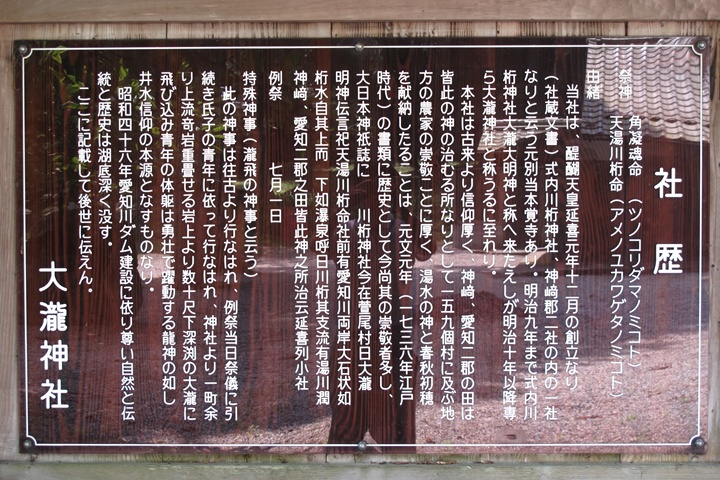 社歴
祭神　角凝魂命　（ツノコリダマノミコト）
天湯川桁命（アメノユカワゲタノミコト）
由緒
当社は、醍醐天皇延喜元年十二月の創立なり
（社蔵文書）式内川桁神社、神崎郡二社の内の一社
なりと云う元別当本覚寺あり。明治九年まで式内川
桁神社大瀧大明神と称へ来たえしが明治十年以降専
ら大瀧神社と称うるに至れり。
本社は古来より信仰厚く、神崎、愛知二郡の田は
皆此の神の治むる所なりとして一五九個村に及ぶ地
方の農家の崇敬ことに厚く、湯水の神と春秋初穂
を献納したることは、元文元年（一七三六年江戸
時代）の書類に歴史として今尚其の崇敬者多し、
大日本神祇誌に　川桁神社今在菅尾村日大瀧
明神伝言祀天湯川桁命社前有愛知川両岸大石状如
桁水自其上而　下如瀑泉呼日川桁其支流有湯川潤
神崎、愛知二郡之田皆此神之所治云延喜列小社
例祭　七月一日
特殊神事（瀧飛の神事と云う）
此の神事は往古より行なはれ、例祭当日祭儀に引
続き氏子の青年に依って行なはれ、神社より一町余
り上流奇岩重畳せる岩上より数十尺下深渕の大瀧に
飛び込み青年の体躯は勇壮で躍動する龍神の如し
井水信仰の本源となすものなり。
昭和四十六年愛知川ダム建設に依り尊い自然と伝
統と歴史は湖底深く没す。
ここに記載して後世に伝えん。
大瀧神社